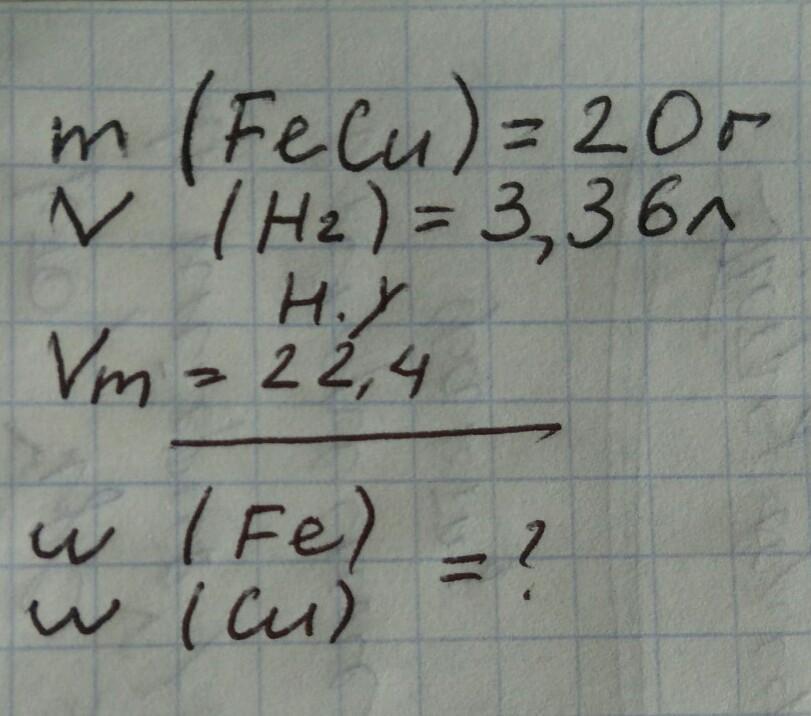 m (FeCu) = 20г
V (H2) = 3,36л
н.у
Vm = 22,4
w (Fe) = ?
w (Cu)